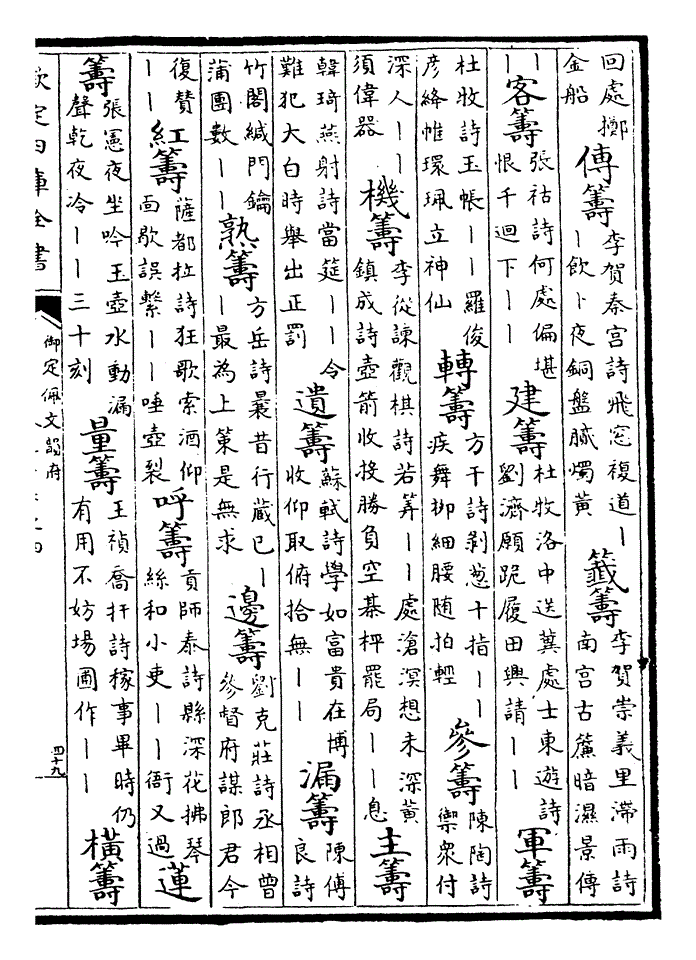 回處擲
金船
傳籌
李賀秦宮詩飛窓複道丨
丨飲卜夜銅盤膩燭黃
籤籌
李賀崇義里滯雨詩
南宮古簾暗濕景傳
丨
丨
客籌
張祜詩何處偏堪
恨千迴下丨丨
建籌
杜牧洛中送冀處士東遊詩
劉濟願跪履田興請丨
軍籌
杜牧詩玉帳丨丨羅俊
彦絡帷環珮立神仙
轉籌
方干詩剥葱十指丨丨
疾舞栁細腰随拍輕
參籌
陳陶詩
禦衆付
深人丨丨
須偉器
機籌
李從諫觀棋詩若筭丨丨處滄溟想未深黄
鎮成詩壺箭收投勝負空棊枰罷局丨丨息
主籌
韓琦燕射詩當筵丨丨令
難犯大白時舉出正罰
遺籌
蘇軾詩學如富貴在博
收仰取俯拾無丨丨
漏籌
陳傅
良詩
竹閣緘門鑰
蒲團數丨丨
熟籌
方岳詩曩昔行藏已丨
丨最為上策是無求
邊籌
劉克莊詩丞相曾
參督府謀郎君今
復賛
丨丨
紅籌
薩都拉詩狂歌索酒仰
面歇誤繫丨丨唾壺裂
呼籌
貢師泰詩縣深花拂琴
絲和小吏丨丨衙又過
蓮
籌
張憲夜坐吟玉壺水動漏
聲乾夜冷丨丨三十刻
量籌
王禎喬扞詩稼事畢時仍
有用不妨場圃作丨丨
橫籌
欽定四庫全書
御定佩文韻府
四十九